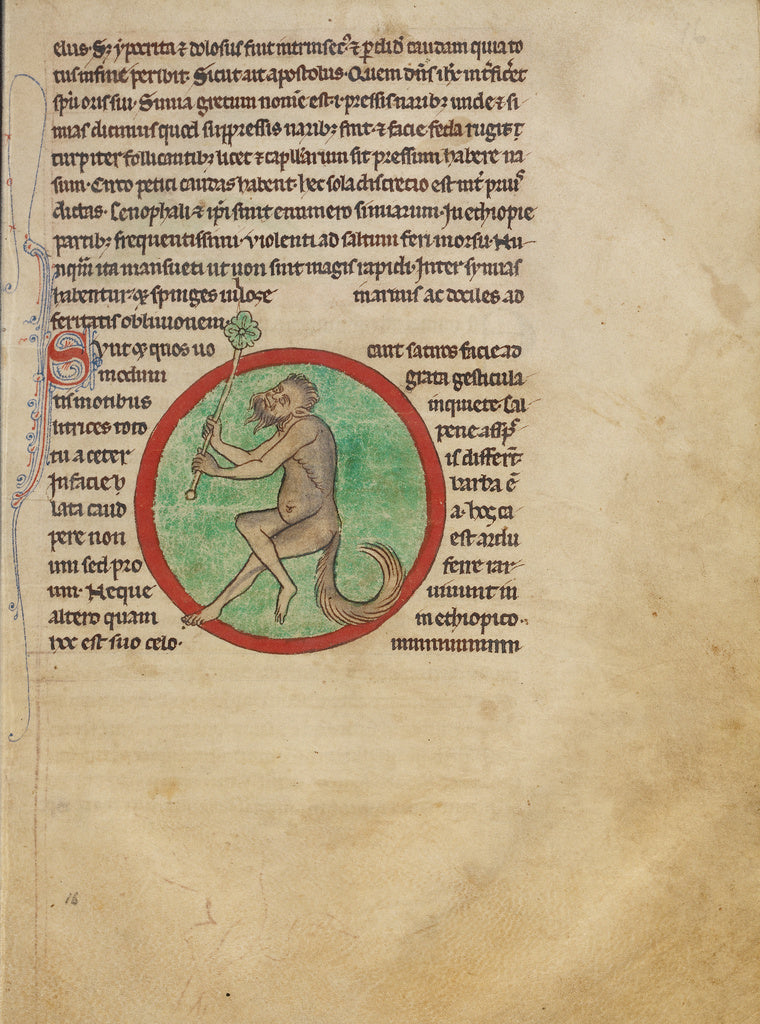 elius. Sꝫ ypocrita ⁊ dolosus fuit intrinsecꝰ ⁊ ꝑdidͥ caudam quia to
tus in fine peribit. Sicut ait apostolus. Quem dn̄s ih̅c int̅ficiet
sp̅u oris sui. Simia grecum nom̅e est. i. pressis naribꝫ unde ⁊ si
mias dicimus quod suppressis naribꝫ sint. ⁊ facie feda rugis t̅
turpiter follicantibꝫ licet ⁊ capellarum sit pressum habere na
sum. Circo petici caudas habent. hec sola discrecio est int̅ priuˢ
dictas. Cenophali ⁊ ip̅i sunt e numero simiarum. In ethiopie
partibꝫ frequentissimi. violenti ad saltum feri morsu. Nu
nqͣm ita mansueti ut non sint magis rapidi. Inter symias
habentur ⁊ spinges uillose marmis ac dociles ad
feritatis obliuionem.
Synt ⁊ quos uo cant satiros facie ad
modum grata gesticula
tis motibus inquiete. Cal
litrices toto pene aspͨ
tu a ceter is differt̅
In facie b barba ē
lata caud a. hos ca
pere non est ardu
um sed pro ferre rar
um. Neque uiuunt in
altero quam in ethiopico.
hoc est suo celo.